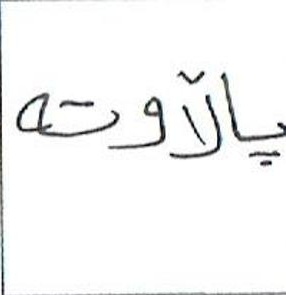 پاڵاوتە